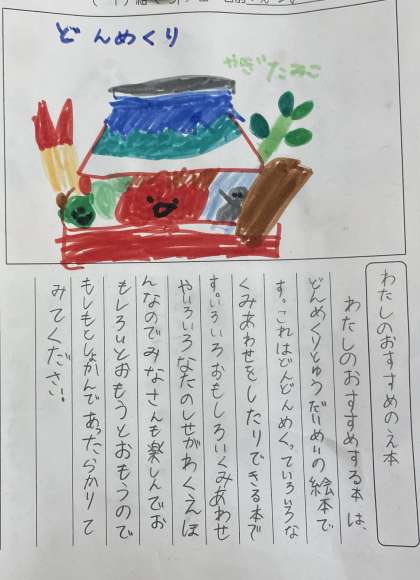 どんめくり
やぎたみこ
わたしのおすすめのえ本
わたしのおすすめする本は、
どんめくりとゅうだいめいの絵本で
す。これはどんどんめくっていろいろな
くみあわせをしたりできる本で
す。いろいろおもしろいくみあわせ
やいろいろなたのしせがわくえほ
んなのでみなさんも楽しんでお
もしろいとおもうとおもうので
もしもとしょかんであったらかりて
みてください。